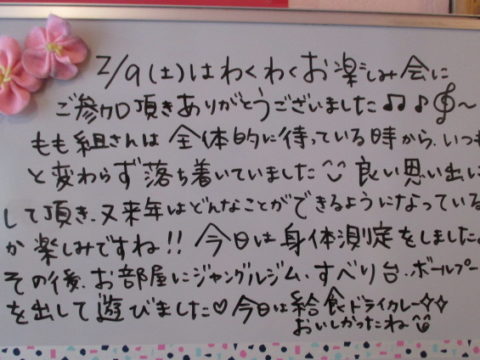 2/9(土)はわくわくお楽しみ会に
ご参加頂きありがとうございました♫♪𝄞〜
もも組さんは全体的に待っている時から、いつも
と変わらず落ち着いていました 良い思い出に
して頂き、又来年はどんなことができるようになっている
か楽しみですね!! 今日は身体測定をしました。
その後、お部屋にジャングルジム、すべり台、ボールプー
を出して遊びました♡ 今日は給食ドライカレー✧✧
おいしかったね